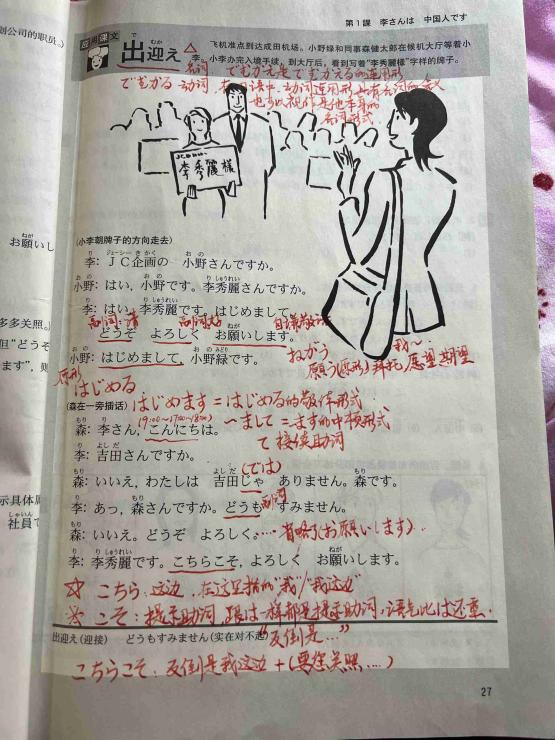 第1課 李さんは 中国人です
应用课文
出迎え
飞机准点到达成田机场。小野绿和同事森健太郎在候机大厅等着小
李。小李办完入境手续，到大厅后，看到写着"李秀麗様"字样的牌子。
名词 でむかえ是でむかえる的连用形
でむかる 动词 在日语中，动词连用形也有名词的
也可以视作是他本身的
名词形式
李秀麗様
(小李朝牌子的方向走去)
李: ＪＣ企画の 小野さんですか。
小野: はい，小野です。李秀麗さんですか。
李: はい，李秀麗です。はじめまして。
どうぞ よろしく お願いします。
小野: はじめまして，小野緑です。
ねがう 我～
願う(原形) 拜托/愿望、期望
原形
はじめる
(森在一旁插话) はじめます＝はじめる的敬体形式
森: 李さん，こんにちは。 ～まして＝ます的中顿形式
て 接续助词
李: 吉田さんですか。
(では)
森: いいえ，わたしは 吉田じゃ ありません。森です。
李: あっ，森さんですか。どうも すみません。
森: いいえ。どうぞ よろしく。…省略了(お願いします)．
李: 李秀麗です。こちらこそ，よろしく お願いします。
☆ こちら：这边，在这里指的"我"/"我这边"
※ こそ：提示助词，跟は一样都是提示助词，语气比は还重．
出迎え(迎接) どうもすみません(实在对不起) "反倒是…"
こちらこそ：反倒是我这边＋(要您关照…)
27
划公司的职员。)
お願いし
多多关照。)
但"どうぞ
ます"，则
示具体属
社員で